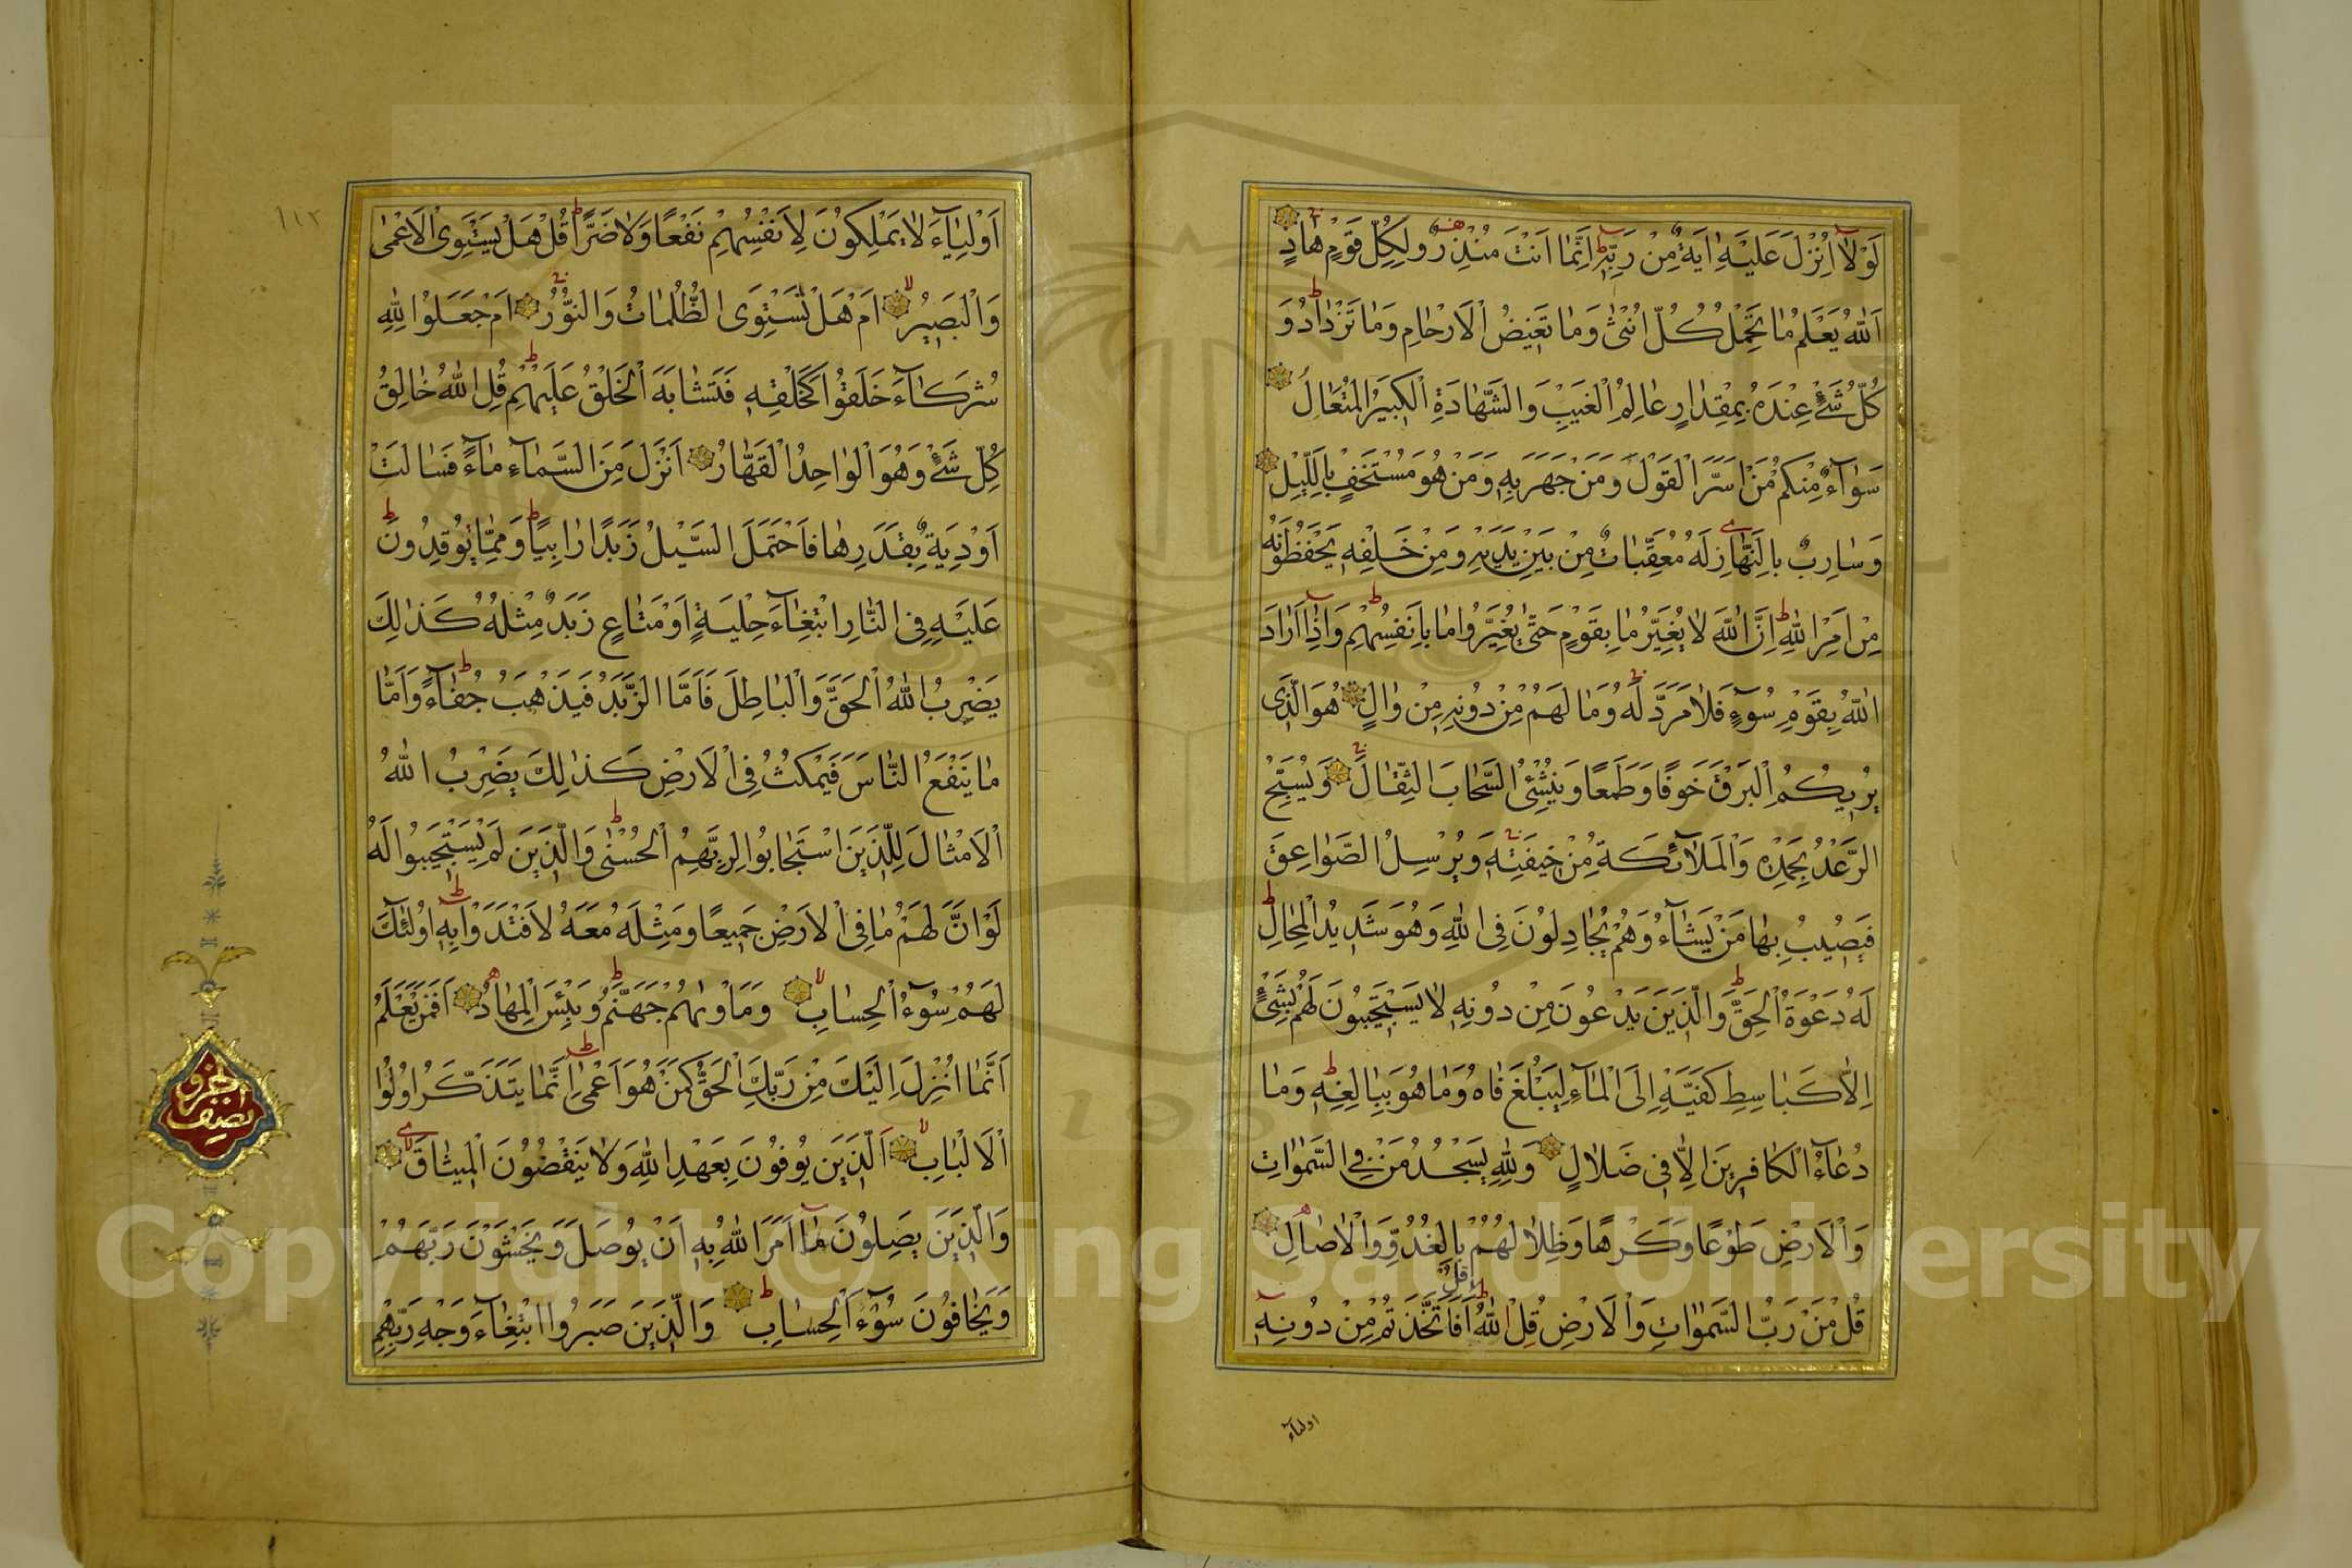 لَوْلَا اُنْزِلَ عَلَيْهِ اٰيَةٌ مِنْ رَبِّهٖ اِنَّمَا اَنْتَ مُنْذِرٌ وَلِكُلِّ قَوْمٍ هَادٍ
اَللّٰهُ يَعْلَمُ مَا تَحْمِلُ كُلُّ اُنْثٰى وَمَا تَغِيضُ الْاَرْحَامِ وَمَا تَزْدَادُ وَ
كُلُّ شَیْءٍ عِنْدَهُ بِمِقْدَارٍ عَالِمُ الْغَيْبِ وَالشَّهَادَةِ الْكَبِيرُ الْمُتَعَالِ
سَوَاءٌ مِنْكُمْ مَنْ اَسَرَّ الْقَوْلَ وَمَنْ جَهَرَ بِهٖ وَمَنْ هُوَ مُسْتَخْفٍ بِاللَّيْلِ
وَسَارِبٌ بِالنَّهَارِ لَهُ مُعَقِّبَاتٌ مِنْ بَيْنِ يَدَيْهِ وَمِنْ خَلْفِهٖ يَحْفَظُونَهُ
مِنْ اَمْرِ اللّٰهِ اِنَّ اللّٰهَ لَا يُغَيِّرُ مَا بِقَوْمٍ حَتّٰى يُغَيِّرُوا مَا بِاَنْفُسِهِمْ وَاِذَا اَرَادَ
اللّٰهُ بِقَوْمٍ سُوءٍ فَلَا مَرَدَّ لَهُ وَمَا لَهُمْ مِنْ دُونِهٖ مِنْ وَالٍ هُوَ الَّذِى
يُرِيكُمُ الْبَرْقَ خَوْفًا وَطَمَعًا وَيُنْشِئُ السَّحَابَ الثِّقَالَ وَيُسَبِّحُ
الرَّعْدُ بِحَمْدِهٖ وَالْمَلَائِكَةُ مِنْ خِيفَتِهٖ وَيُرْسِلُ الصَّوَاعِقَ
فَيُصِيبُ بِهَا مَنْ يَشَاءُ وَهُمْ يُجَادِلُونَ فِى اللّٰهِ وَهُوَ شَدِيدُ الْمِحَالِ
لَهُ دَعْوَةُ الْحَقِّ وَالَّذِينَ يَدْعُونَ مِنْ دُونِهٖ لَا يَسْتَجِيبُونَ لَهُمْ بِشَیْءٍ
اِلَّا كَبَاسِطِ كَفَّيْهِ اِلَى الْمَاءِ لِيَبْلُغَ فَاهُ وَمَا هُوَ بِبَالِغِهٖ وَمَا
دُعَاءُ الْكَافِرِينَ اِلَّا فِى ضَلَالٍ وَلِلّٰهِ يَسْجُدُ مَنْ فِى السَّمٰوَاتِ
وَالْاَرْضِ طَوْعًا وَكَرْهًا وَظِلَالُهُمْ بِالْغُدُوِّ وَالْاٰصَالِ
قُلْ
قُلْ مَنْ رَبُّ السَّمٰوَاتِ وَالْاَرْضِ قُلِ اللّٰهُ اَفَاتَّخَذْتُمْ مِنْ دُونِهٖ
اولياء
١١٢
اَوْلِيَاءَ لَا يَمْلِكُونَ لِاَنْفُسِهِمْ نَفْعًا وَلَا ضَرًّا قُلْ هَلْ يَسْتَوِى الْاَعْمٰى
وَالْبَصِيرُ اَمْ هَلْ تَسْتَوِى الظُّلُمَاتُ وَالنُّورُ اَمْ جَعَلُوا لِلّٰهِ
شُرَكَاءَ خَلَقُوا كَخَلْقِهٖ فَتَشَابَهَ الْخَلْقُ عَلَيْهِمْ قُلِ اللّٰهُ خَالِقُ
كُلِّ شَیْءٍ وَهُوَ الْوَاحِدُ الْقَهَّارُ اَنْزَلَ مِنَ السَّمَاءِ مَاءً فَسَالَتْ
اَوْدِيَةٌ بِقَدَرِهَا فَاحْتَمَلَ السَّيْلُ زَبَدًا رَابِيًا وَمِمَّا يُوقِدُونَ
عَلَيْهِ فِى النَّارِ ابْتِغَاءَ حِلْيَةٍ اَوْ مَتَاعٍ زَبَدٌ مِثْلُهُ كَذٰلِكَ
يَضْرِبُ اللّٰهُ الْحَقَّ وَالْبَاطِلَ فَاَمَّا الزَّبَدُ فَيَذْهَبُ جُفَاءً وَاَمَّا
مَا يَنْفَعُ النَّاسَ فَيَمْكُثُ فِى الْاَرْضِ كَذٰلِكَ يَضْرِبُ اللّٰهُ
الْاَمْثَالَ لِلَّذِينَ اسْتَجَابُوا لِرَبِّهِمُ الْحُسْنٰى وَالَّذِينَ لَمْ يَسْتَجِيبُوا لَهُ
لَوْ اَنَّ لَهُمْ مَا فِى الْاَرْضِ جَمِيعًا وَمِثْلَهُ مَعَهُ لَافْتَدَوْا بِهٖ اُولٰئِكَ
لَهُمْ سُوءُ الْحِسَابِ وَمَاْوٰيهُمْ جَهَنَّمُ وَبِئْسَ الْمِهَادُ اَفَمَنْ يَعْلَمُ
اَنَّمَا اُنْزِلَ اِلَيْكَ مِنْ رَبِّكَ الْحَقُّ كَمَنْ هُوَ اَعْمٰى اِنَّمَا يَتَذَكَّرُ اُولُوا
الْاَلْبَابِ اَلَّذِينَ يُوفُونَ بِعَهْدِ اللّٰهِ وَلَا يَنْقُضُونَ الْمِيثَاقَ
وَالَّذِينَ يَصِلُونَ مَا اَمَرَ اللّٰهُ بِهٖ اَنْ يُوصَلَ وَيَخْشَوْنَ رَبَّهُمْ
وَيَخَافُونَ سُوءَ الْحِسَابِ وَالَّذِينَ صَبَرُوا ابْتِغَاءَ وَجْهِ رَبِّهِمْ
نصف الجزو
Copyright © King Saud University